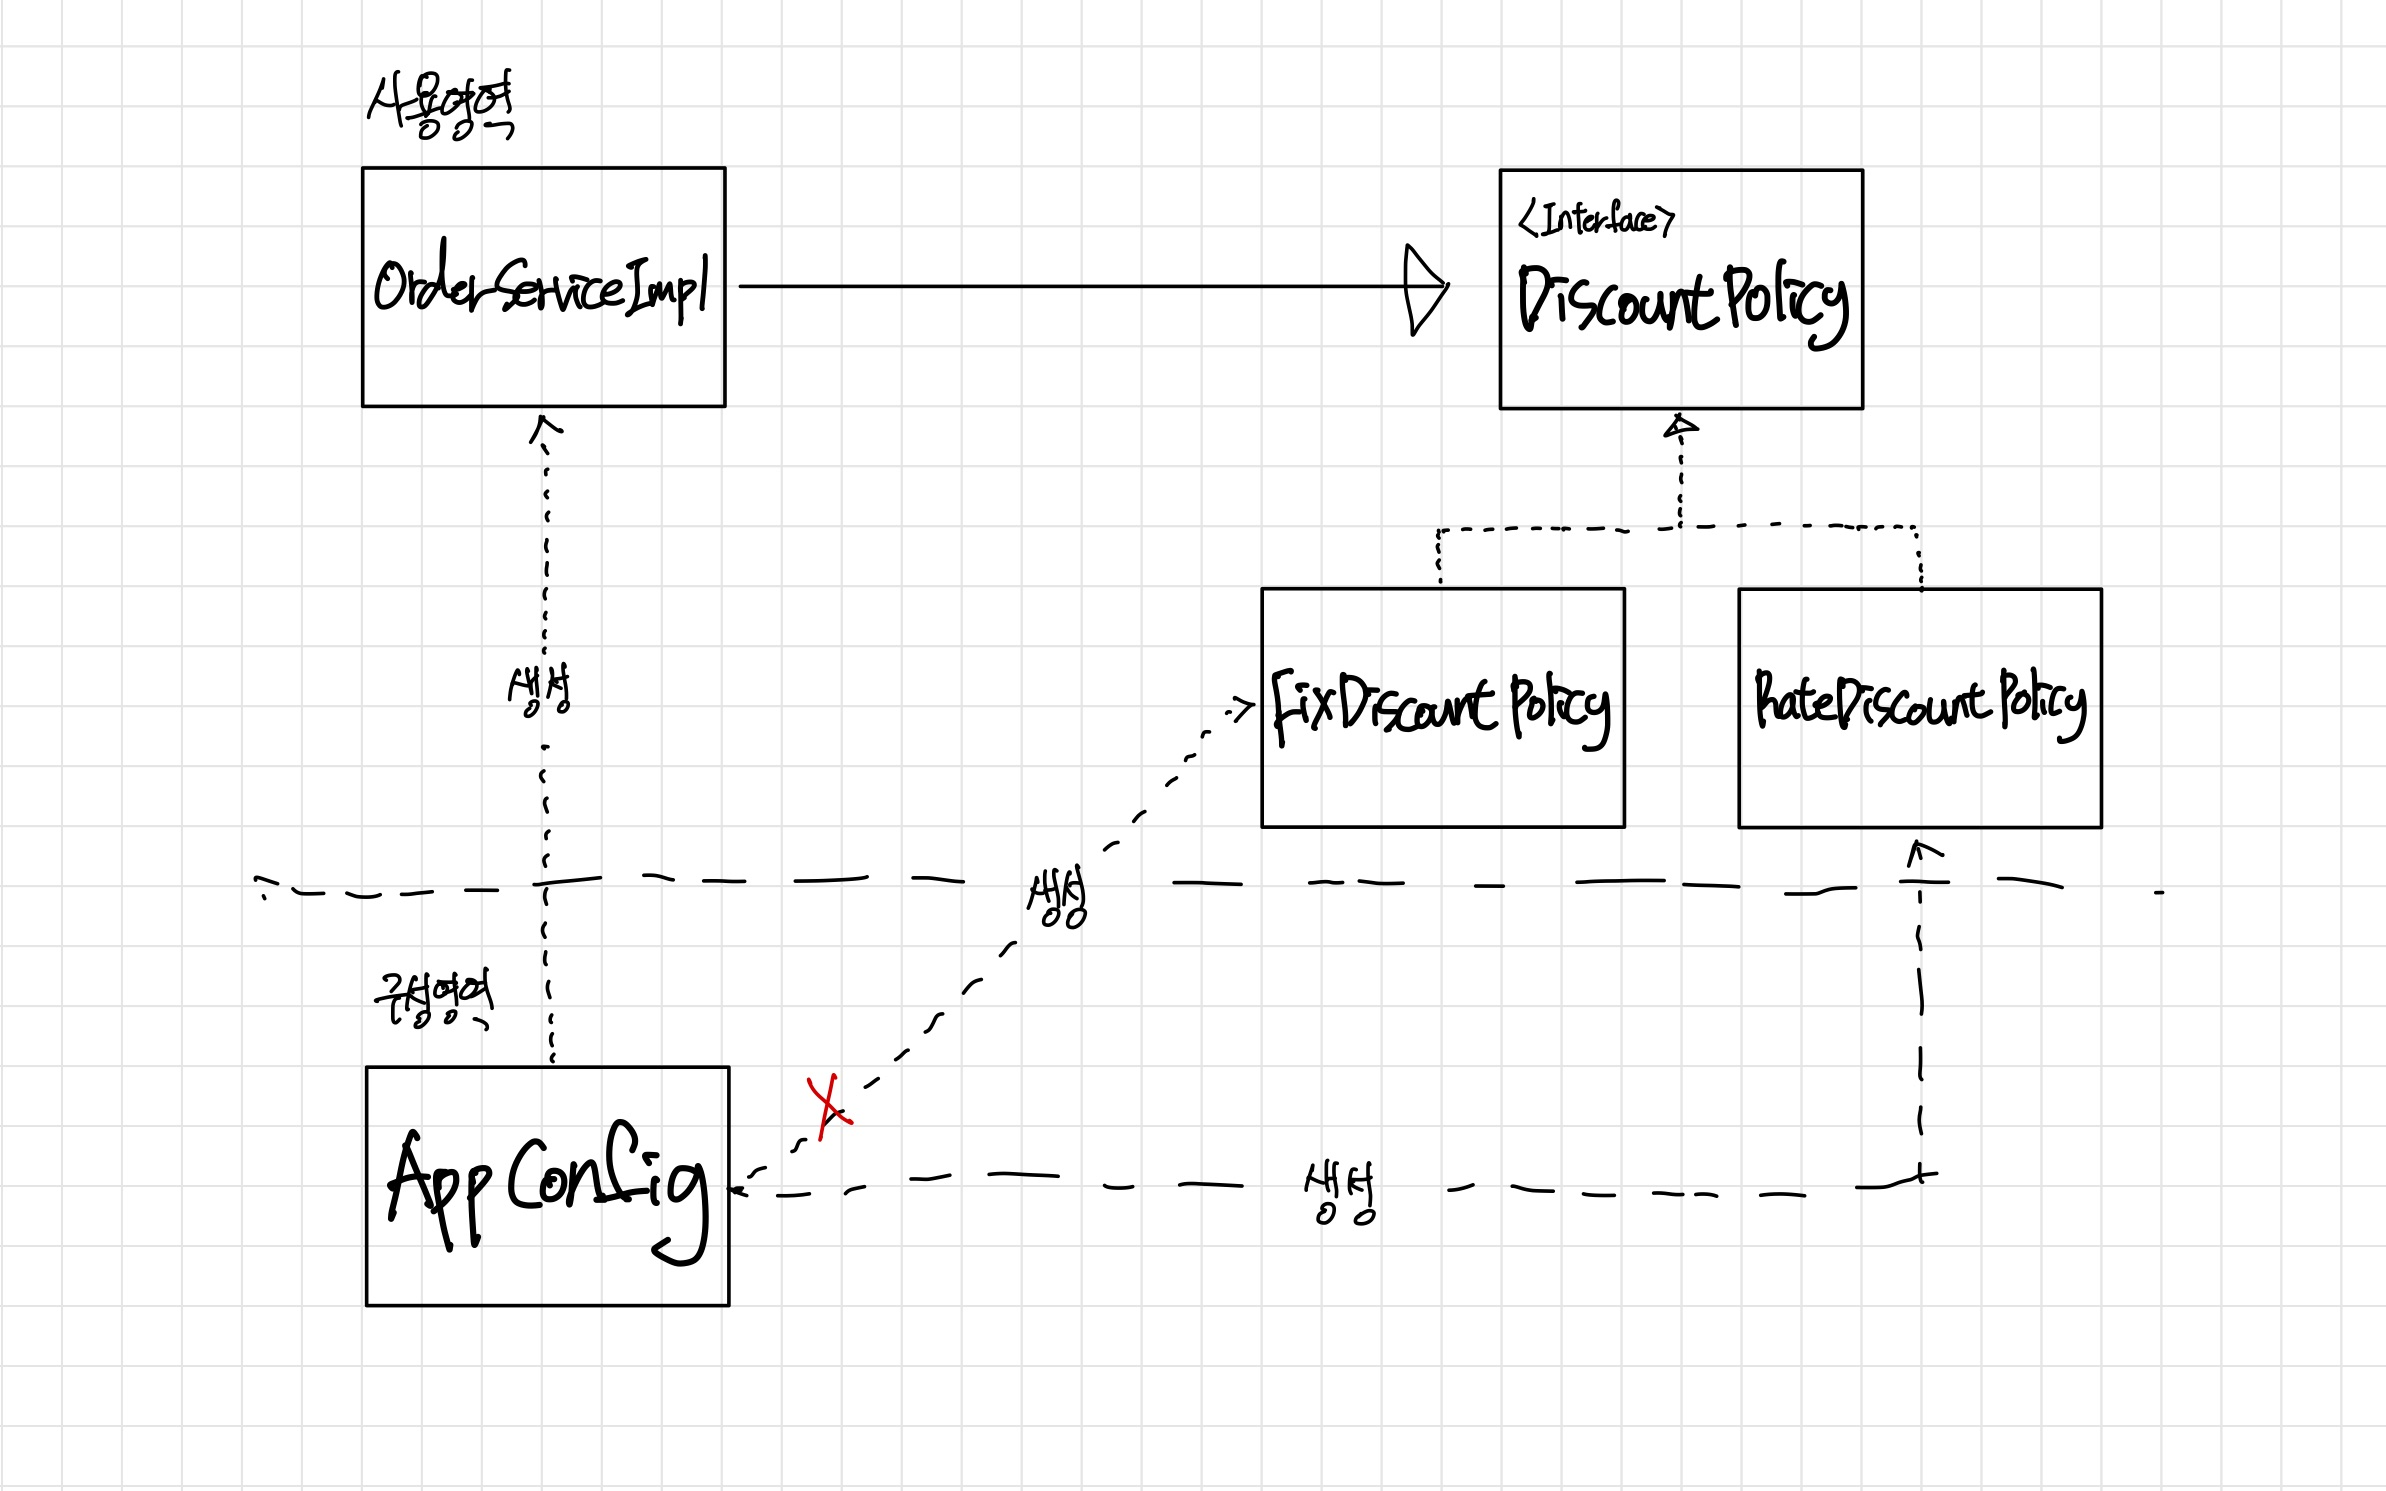 사용영역
OrderServiceImpl
<Interface>
DiscountPolicy
생성
FixDiscountPolicy
RateDiscountPolicy
생성
구성영역
AppConfig
생성